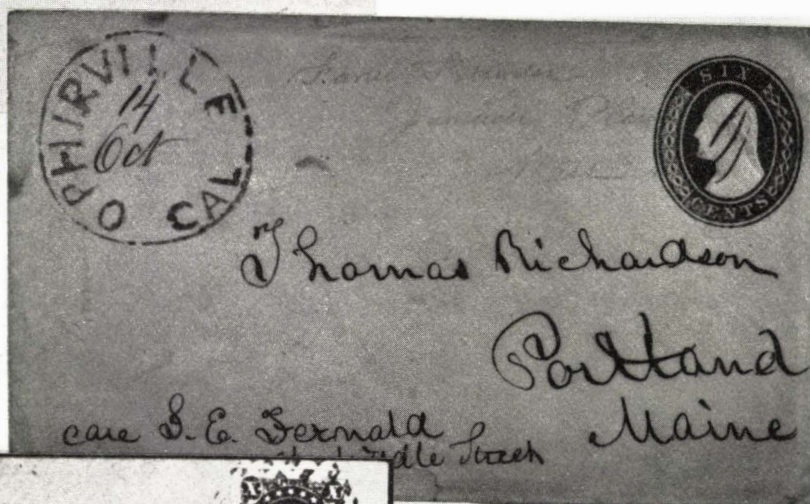 OPHIRVILLE
14
Oct
CAL
SIX
CENTS
Thomas Richardson
Portland
Maine
care S. E. Fernald
Street